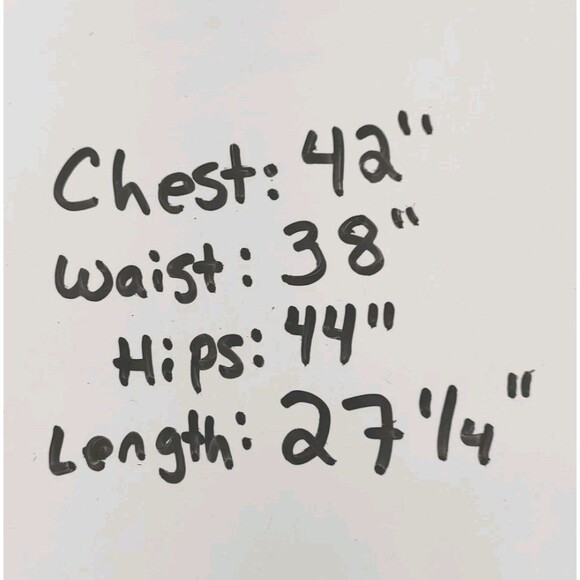 Chest: 42"
Waist: 38"
Hips: 44"
Length: 27 1/4"